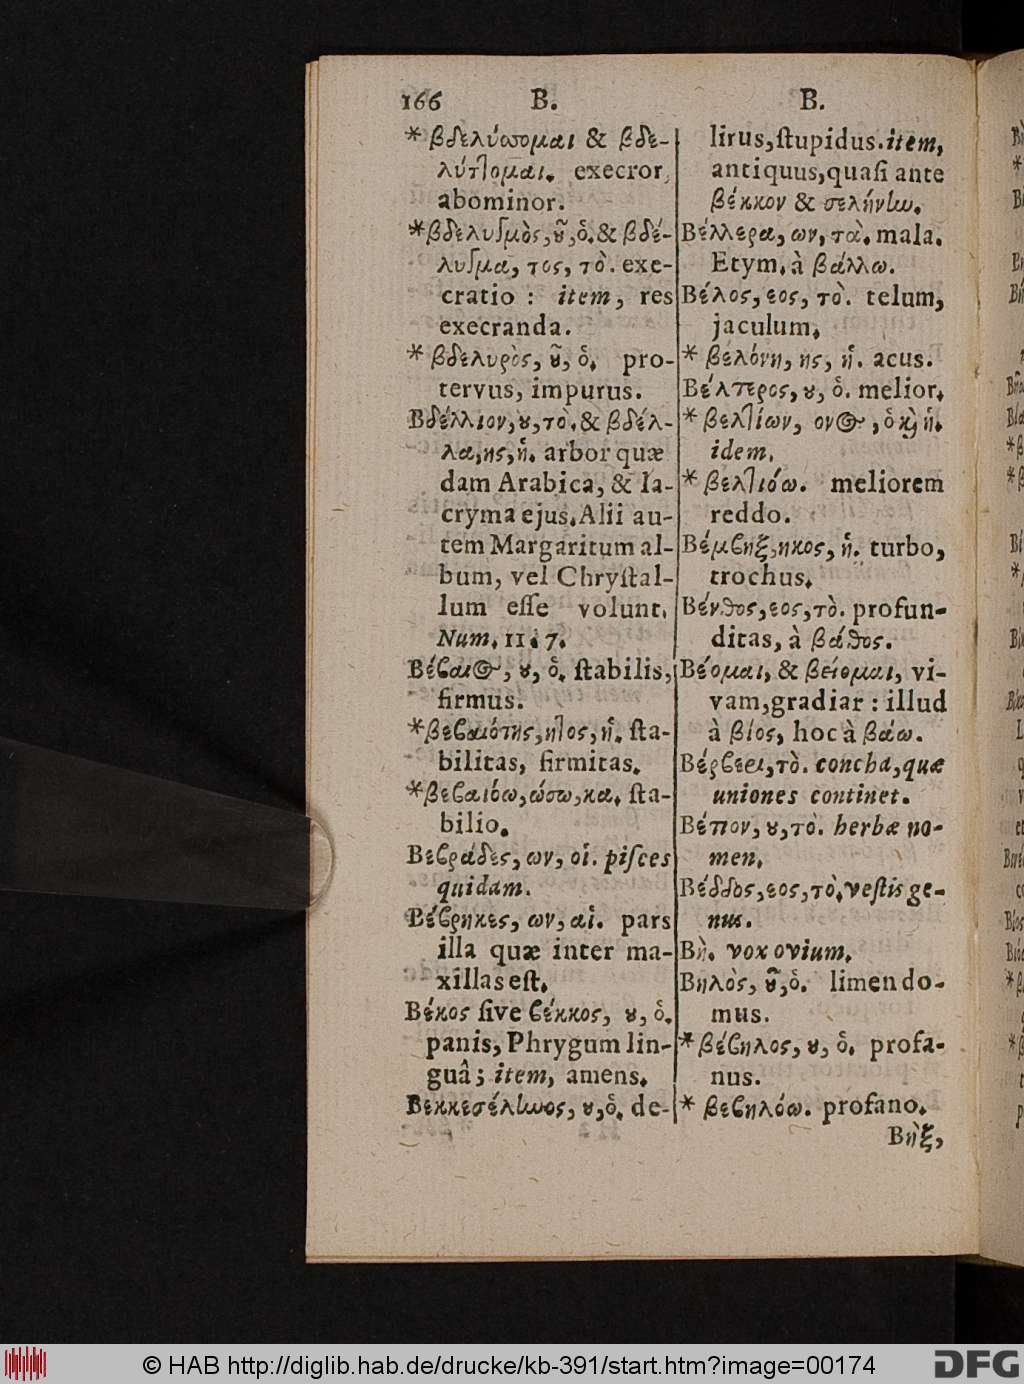 166 B. B.
* βδελύσσομαι & βδε-
λύτλομαι. execror,
abominor.
*βδελυσμὸς, ȣ͂, ὁ. & βδέ-
λυσμα, τος, τὸ. exe-
cratio : item, res
execranda.
* βδελυρὸς, ȣ͂, ὁ. pro-
tervus, impurus.
Βδέλλιον, ȣ, τὸ. & βδέλ-
λα, ης, ἡ. arbor quæ
dam Arabica, & la-
cryma ejus. Alii au-
tem Margaritum al-
bum, vel Chryſtal-
lum eſſe volunt.
Num. 11. 7.
Βέϐαιος, ȣ, ὁ. ſtabilis,
firmus.
*βεϐαιότης, ητος, ἡ. ſta-
bilitas, firmitas.
*βεϐαιόω, ώσω, κα. ſta-
bilio.
Βεϐράδες, ων, οἱ. piſces
quidam.
Βέϐρηκες, ων, αἱ. pars
illa quæ inter ma-
xillas eſt.
Βέκος ſive ϐέκκος, ȣ, ὁ.
panis, Phrygum lin-
guâ; item, amens.
Βεκκεσέληνος, ȣ, ὁ. de-
lirus, ſtupidus. item,
antiquus, quaſi ante
βέκκον & σελήνην.
Βέλλερα, ων, τὰ. mala.
Etym. à βάλλω.
Βέλος, εος, τὸ. telum,
jaculum.
* βελόνη, ης, ἡ. acus.
Βέλτερος, ȣ, ὁ. melior.
* βελτίων, ονος, ὁ ϗ ἡ.
idem.
* βελτιόω. meliorem
reddo.
Βέμϐηξ, ηκος, ἡ. turbo,
trochus.
Βένθος, εος, τὸ. profun-
ditas, à βάθος.
Βέομαι, & βείομαι, vi-
vam, gradiar : illud
à βίος, hoc à βάω.
Βέρϐερι, τὸ. concha, quæ
uniones continet.
Βέπον, ȣ, τὸ. herbæ no-
men.
Βέδδος, εος, τὸ. veſtis ge-
nus.
Βὴ. vox ovium.
Βηλὸς, ȣ͂, ὁ. limen do-
mus.
* βέϐηλος, ȣ, ὁ. profa-
nus.
* βεϐηλόω. profano.
Βὴξ,
© HAB http://diglib.hab.de/drucke/kb-391/start.htm?image=00174
DFG